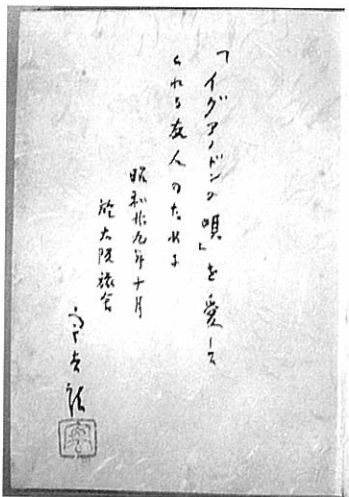 「イグアノドンの唄」を愛して
くれる友人のために
昭和廿九年十月
於大阪旅舎
宇吉郎